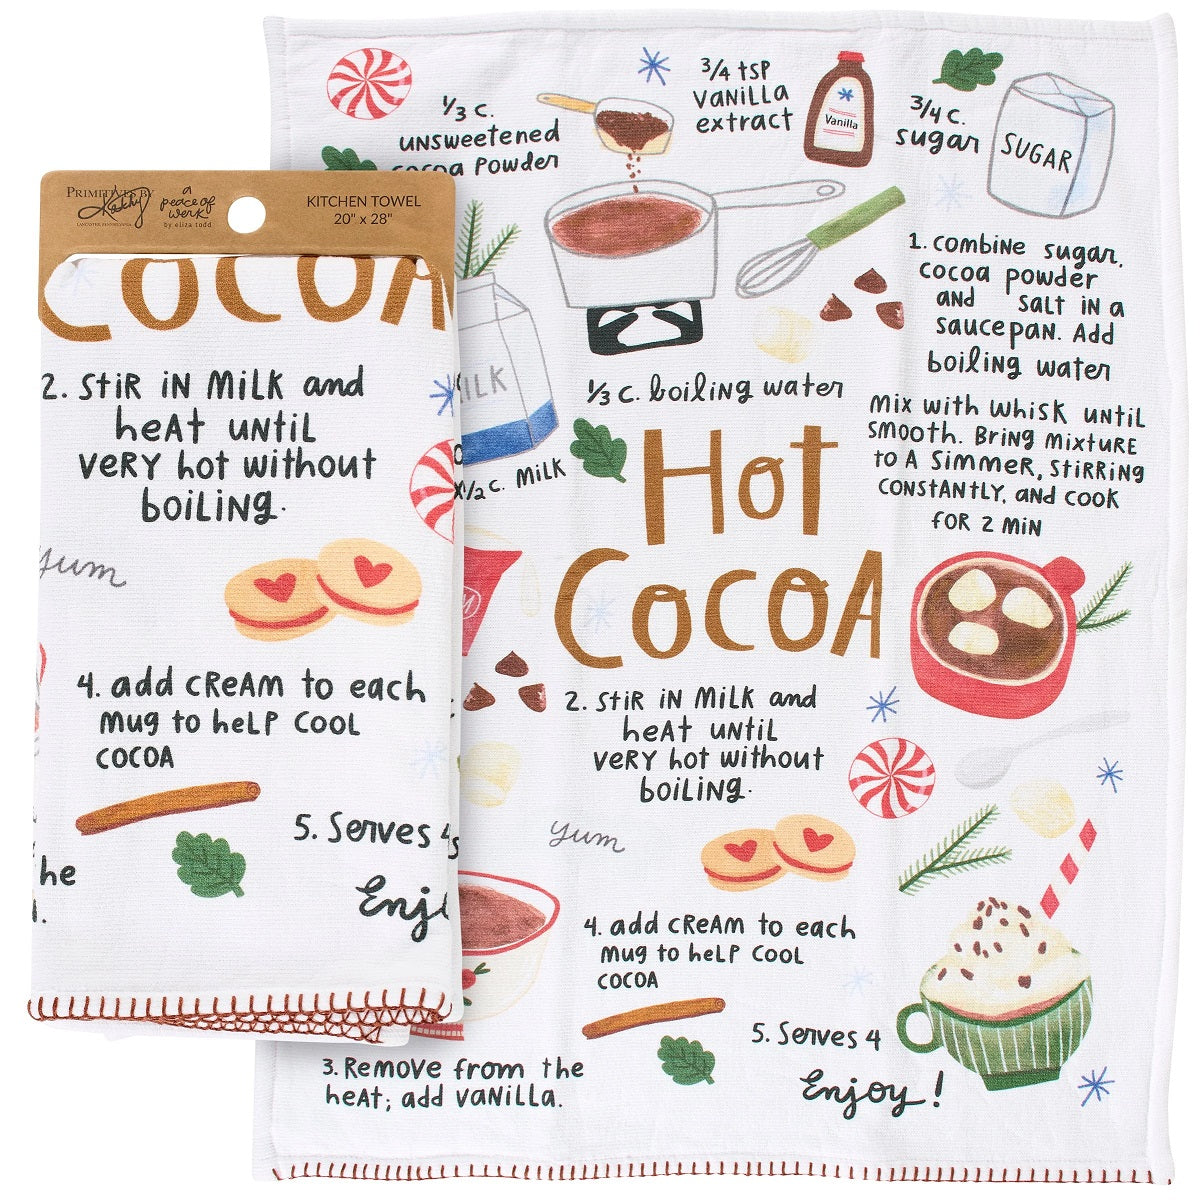 PRIMITIVES BY
Kathy
LANCASTER, PENNSYLVANIA
a
peace of
werk
by eliza todd
KITCHEN TOWEL
20" x 28"
COCOA
2. Stir in milk and
heat until
very hot without
boiling.
yum
4. add cream to each
mug to help cool
cocoa
5. Serves 4
he
Enj
1/3 c.
unsweetened
cocoa powder
3/4 tsp
vanilla
extract
Vanilla
3/4 c.
sugar
SUGAR
1. Combine sugar,
cocoa powder
and salt in a
saucepan. Add
boiling water
Mix with whisk until
smooth. Bring mixture
to a simmer, stirring
constantly, and cook
for 2 min
ILK
1/3 c. boiling water
1/2 c. milk
Hot
Cocoa
2. Stir in milk and
heat until
very hot without
boiling.
yum
4. add cream to each
mug to help cool
cocoa
5. Serves 4
3. Remove from the
heat; add vanilla.
Enjoy!